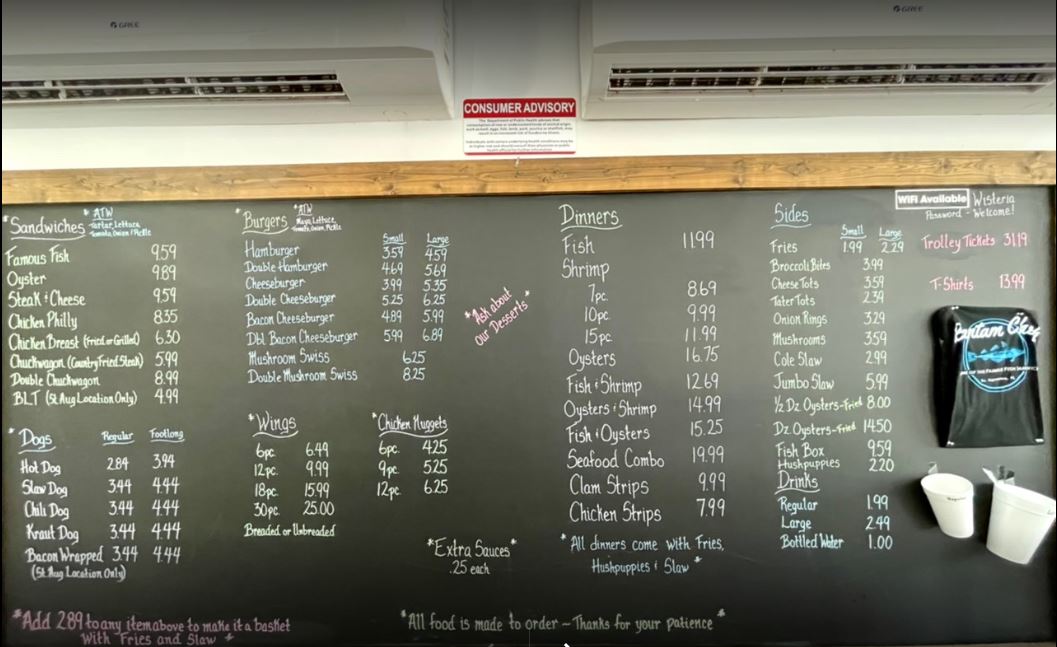 GREE
GREE
CONSUMER ADVISORY
WiFi Available Wisteria
Password - Welcome!
*Sandwiches
*ATW
Tartar, Lettuce,
Tomato, Onion / Pickle
Famous Fish 9.59
Oyster 9.89
Steak & Cheese 9.59
Chicken Philly 8.35
Chicken Breast (Fried or Grilled) 6.30
Chuckwagon (Country Fried Steak) 5.99
Double Chuckwagon 8.99
BLT (St Aug Location Only) 4.99
*Dogs Regular Footlong
Hot Dog 2.84 3.94
Slaw Dog 3.44 4.44
Chili Dog 3.44 4.44
Kraut Dog 3.44 4.44
Bacon Wrapped 3.44 4.44
(St Aug Location Only)
*Add 2.89 to any item above to make it a basket
With Fries and Slaw *
*Burgers
*ATW
Mayo, Lettuce,
Tomato, Onion, Pickle
Small Large
Hamburger 3.59 4.59
Double Hamburger 4.69 5.69
Cheeseburger 3.99 5.35
Double Cheeseburger 5.25 6.25
Bacon Cheeseburger 4.89 5.99
Dbl Bacon Cheeseburger 5.99 6.89
Mushroom Swiss 6.25
Double Mushroom Swiss 8.25
*Wings
6pc. 6.49
12pc. 9.99
18pc. 15.99
30pc. 25.00
Breaded or Unbreaded
*Chicken Nuggets
6pc. 4.25
9pc. 5.25
12pc. 6.25
*Ask about
our Desserts*
*Extra Sauces*
.25 each
Dinners
Fish 11.99
Shrimp
7pc. 8.69
10pc. 9.99
15pc. 11.99
Oysters 16.75
Fish & Shrimp 12.69
Oysters & Shrimp 14.99
Fish & Oysters 15.25
Seafood Combo 19.99
Clam Strips 9.99
Chicken Strips 7.99
*All dinners come with Fries,
Hushpuppies & Slaw*
*All food is made to order ~ Thanks for your patience*
Sides
Small Large
Fries 1.99 2.29
Broccoli Bites 3.99
Cheese Tots 3.59
Tater Tots 2.39
Onion Rings 3.29
Mushrooms 3.59
Cole Slaw 2.99
Jumbo Slaw 5.99
1/2 Dz. Oysters-Fried 8.00
Dz. Oysters-Fried 14.50
Fish Box 9.59
Hushpuppies 2.20
Drinks
Regular 1.99
Large 2.49
Bottled Water 1.00
Trolley Tickets 31.19
T-Shirts 13.99